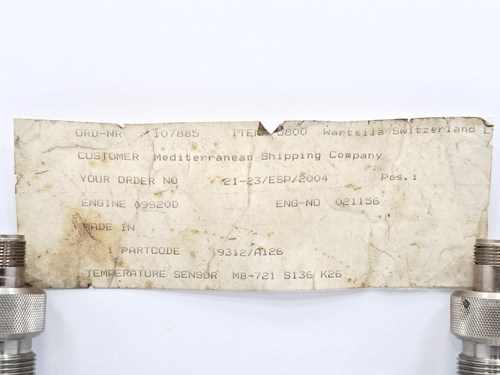 ORD-NR 107885 ITEM 5800 Wartsila Switzerland L
CUSTOMER Mediterranean Shipping Company
YOUR ORDER NO 21-23/ESP/2004 Pos.:
ENGINE 09S20D ENG-NO 021156
MADE IN
1 PARTCODE 9312/A126
TEMPERATURE SENSOR MB-721 S136 K26